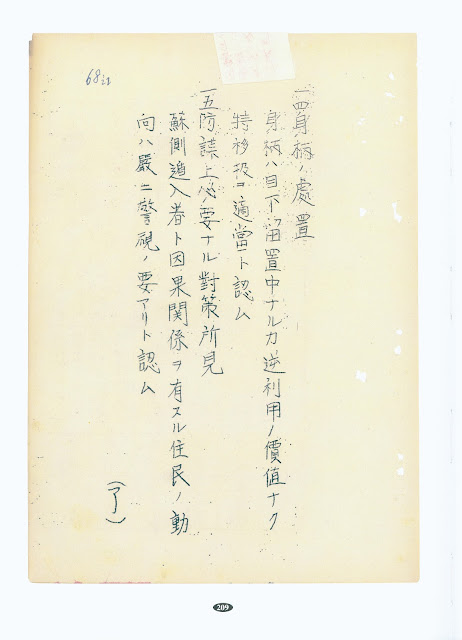 68江
一四身柄ノ處置
身柄ハ目下留置中ナルカ逆利用ノ價値ナク
特移扱ヲ適當ト認ム
一五防諜上必要ナル對策所見
蘇側遁入者ト因果關係ヲ有スル住民ノ動
向ハ嚴ニ警視ノ要アリト認ム
(了)
209